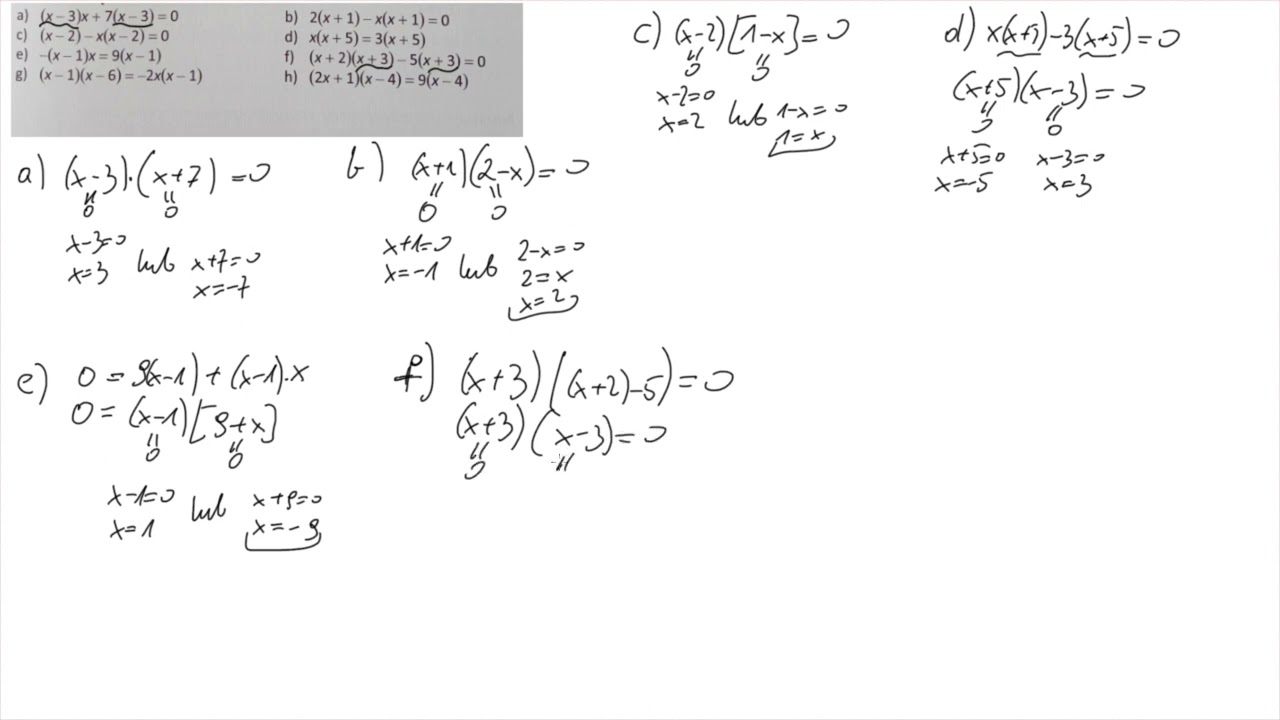 a) (x−3)x+7(x−3)=0 b) 2(x+1)−x(x+1)=0
c) (x−2)−x(x−2)=0 d) x(x+5)=3(x+5)
e) −(x−1)x=9(x−1) f) (x+2)(x+3)−5(x+3)=0
g) (x−1)(x−6)=−2x(x−1) h) (2x+1)(x−4)=9(x−4)
a) (x-3)·(x+7)=0
0 0
x-3=0
x=3 lub x+7=0
x=-7
b) (x+1)(2-x)=0
0 0
x+1=0 2-x=0
x=-1 lub 2=x
x=2
c) (x-2)[1-x]=0
0 0
x-2=0
x=2 lub 1-x=0
1=x
d) x(x+5)-3(x+5)=0
(x+5)(x-3)=0
0 0
x+5=0 x-3=0
x=-5 x=3
e) 0=9(x-1)+(x-1)·x
0=(x-1)[9+x]
0 0
x-1=0 lub x+9=0
x=1 x=-9
f) (x+3)((x+2)-5)=0
(x+3)(x-3)=0
0